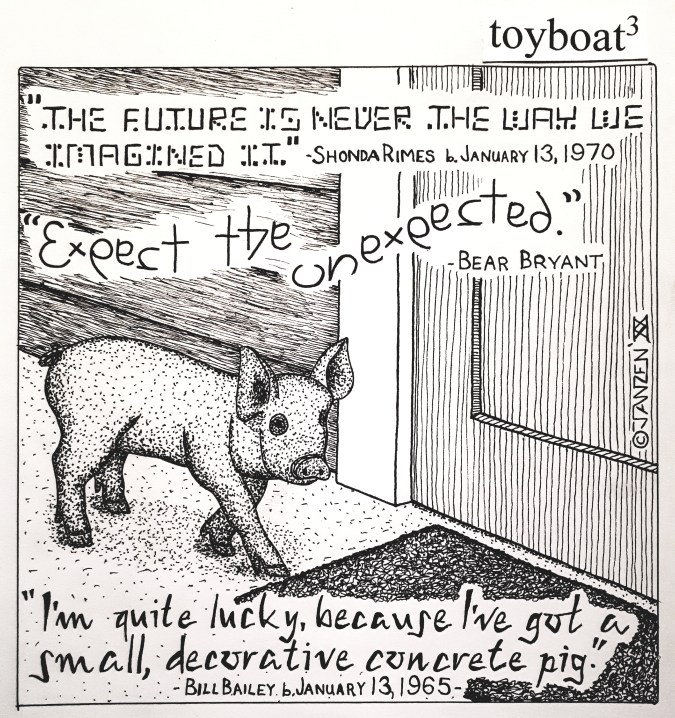 toyboat³
"THE FUTURE IS NEVER THE WAY WE
IMAGINED IT." -SHONDA RIMES b. JANUARY 13, 1970
"Expect the unexpected."
-BEAR BRYANT
©JANZEN 'XX
"I'm quite lucky, because I've got a
small, decorative concrete pig."
-BILL BAILEY b. JANUARY 13, 1965-